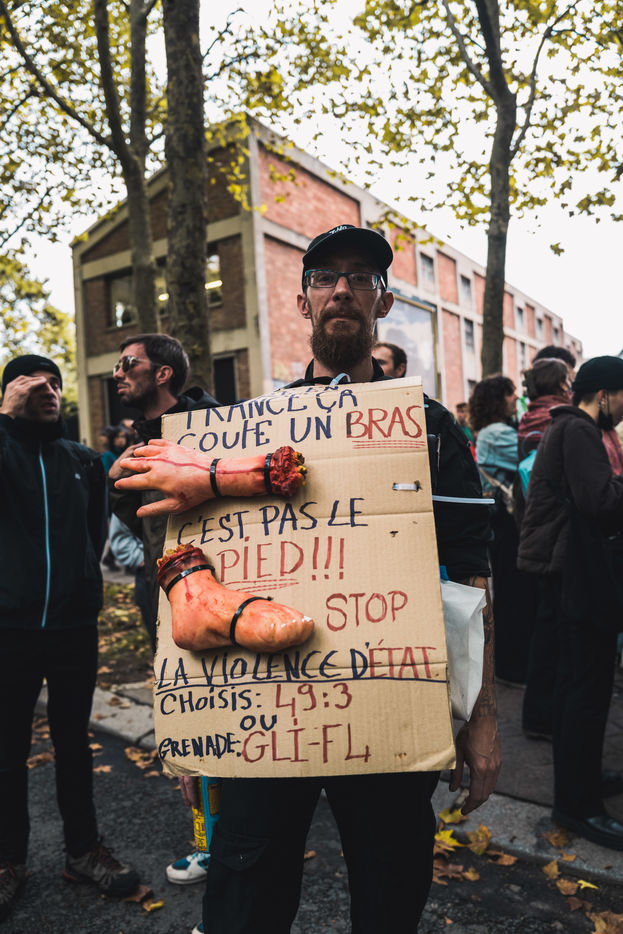 FRANCE ÇA
COUTE UN BRAS
C'EST PAS LE
PIED!!!
STOP
LA VIOLENCE D'ÉTAT
CHOISIS: 49:3
OU
GRENADE: GLI-FL